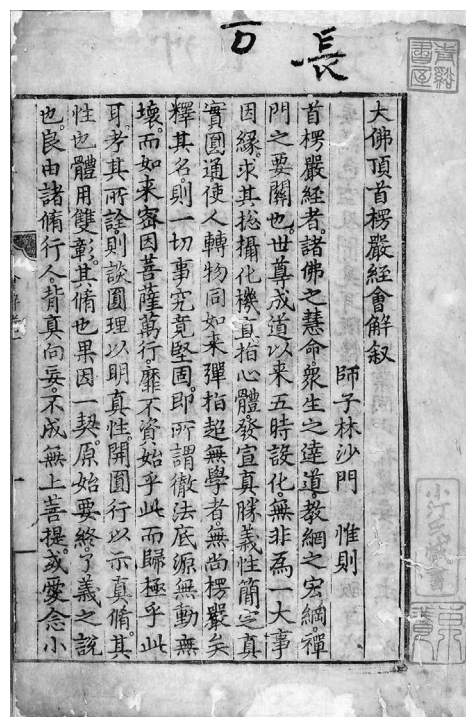 長
大佛頂首楞嚴經會解叙
師子林沙門 惟則
首楞嚴經者。諸佛之慧命。衆生之達道。教網之宏綱。禪
門之要關也。世尊成道以来五時設化。無非為一大事
因緣。求其捴攝化機直指心體。發宣真勝義性簡定真
實圓通使人轉物同如来彈指超無學者。無尚楞嚴矣
釋其名。則一切事究竟堅固。即所謂徹法底源無動無
壞。而如来密因菩薩萬行。靡不資始乎此而歸極乎此
耳。考其所詮。則談圓理以明真性。開圓行以示真脩。其
性也體用雙彰。其脩也果因一契。原始要終。了義之說
也。良由諸脩行人。背真向妄。不成無上菩提。或愛念小
青谿書屋